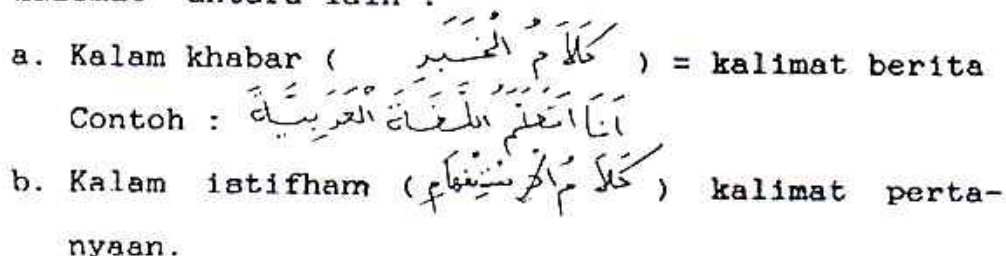 kalimat antara lain :
a. Kalam khabar ( كَلَامُ الْخَبَرِ ) = kalimat berita
Contoh : اَنَا اَتَعَلَّمُ اللُّغَةَ الْعَرَبِيَّةَ
b. Kalam istifham ( كَلَامُ الْإِسْتِفْهَامِ ) kalimat perta-
nyaan.